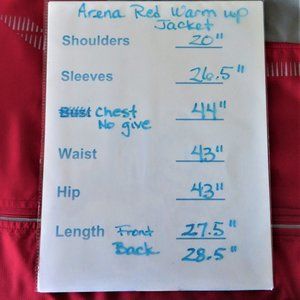 Arena Red Warm up
Jacket
Shoulders 20"
Sleeves 26.5"
Bust Chest 44"
No give
Waist 43"
Hip 43"
Length Front 27.5"
Back 28.5"